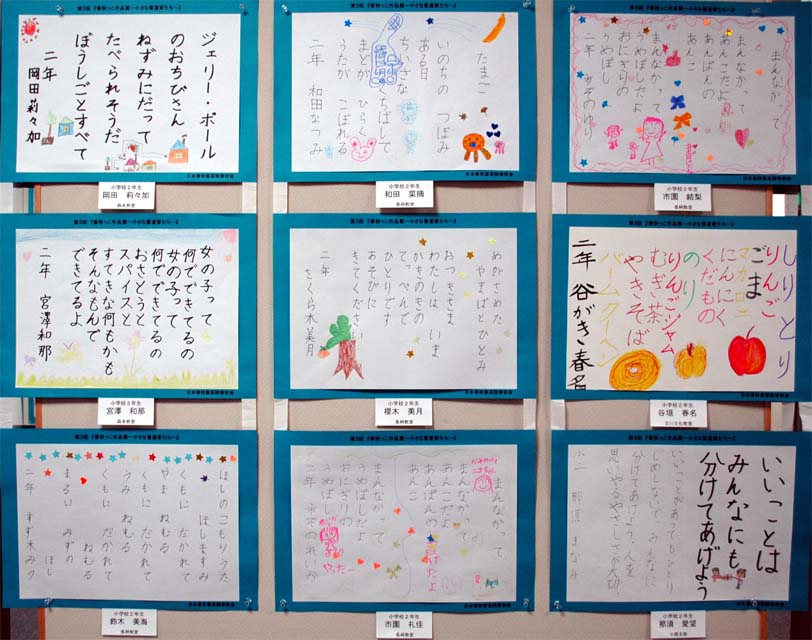 第3回 『審秋っこ作品展~小さな書道家たち~』
ジェリー・ボール
のおちびさん
ねずみにだって
たべられそうだ
ぼうしごとすべて
二年
岡田莉々加
日本審秋書道院審秋会
小学校2年生
岡田 莉々加
森本教室
第3回 『審秋っこ作品展~小さな書道家たち~』
たまご
いのちの つぼみ
ある日
ちいさな
くちばしで
まどが ひらく
うたが こぼれる
二年 和田なつみ
小学校2年生
和田 菜摘
長柄教室
第3回 『審秋っこ作品展~小さな書道家たち~』
まんなかって
まんなかって
あんこだよ
あんぱんの
あんこ
まんなかって
うめぼしだよ
おにぎりの
うめぼし
二年
小学校2年生
市園 結梨
長柄教室
女の子って
何でできてるの
女の子って
何でできてるの
おさとうと
スパイスと
すてきな何もかも
そんなもんで
できてるよ
二年 宮澤和那
小学校2年生
宮澤 和那
森本教室
めがさめた
やまばとひとみ
おつきさま
わたしは、いま
かきのきの
てっぺんで
ひとりです
あそびに
きてください
二年
さくら木美月
小学校2年生
櫻木 美月
長柄教室
しりとり
りんご
ごま
マカロニ
にんにく
くだもの
のり
りんごジャム
むぎ茶
やきそば
バームクーヘン
二年 谷がき春名
小学校2年生
谷垣 春名
第3回 『審秋っこ作品展~小さな書道家たち~』
ほしのこもりうた
ほしますみ
くもに だかれて
やま ねむる
くもに だかれて
うみ ねむる
くもに だかれて
ねむる
まるい みずの
ほし
二年 すず木みう
小学校2年生
鈴木 美海
長柄教室
第3回 『審秋っこ作品展~小さな書道家たち~』
まんなかって
まんなかって
あんこだよ
あんぱんの
あんこ
まんなかって
うめぼしだよ
おにぎりの
うめぼし
小学校2年生
市園 礼佳
長柄教室
第3回 『審秋っこ作品展~小さな書道家たち~』
いいことは
みんなにも
分けてあげよう
いいことがあってもひとり
じめしないで みんなに
分けてあげよう。人を
思いやるやさしさが大切
小二 那須 まなみ
小学校2年生
那須 愛望